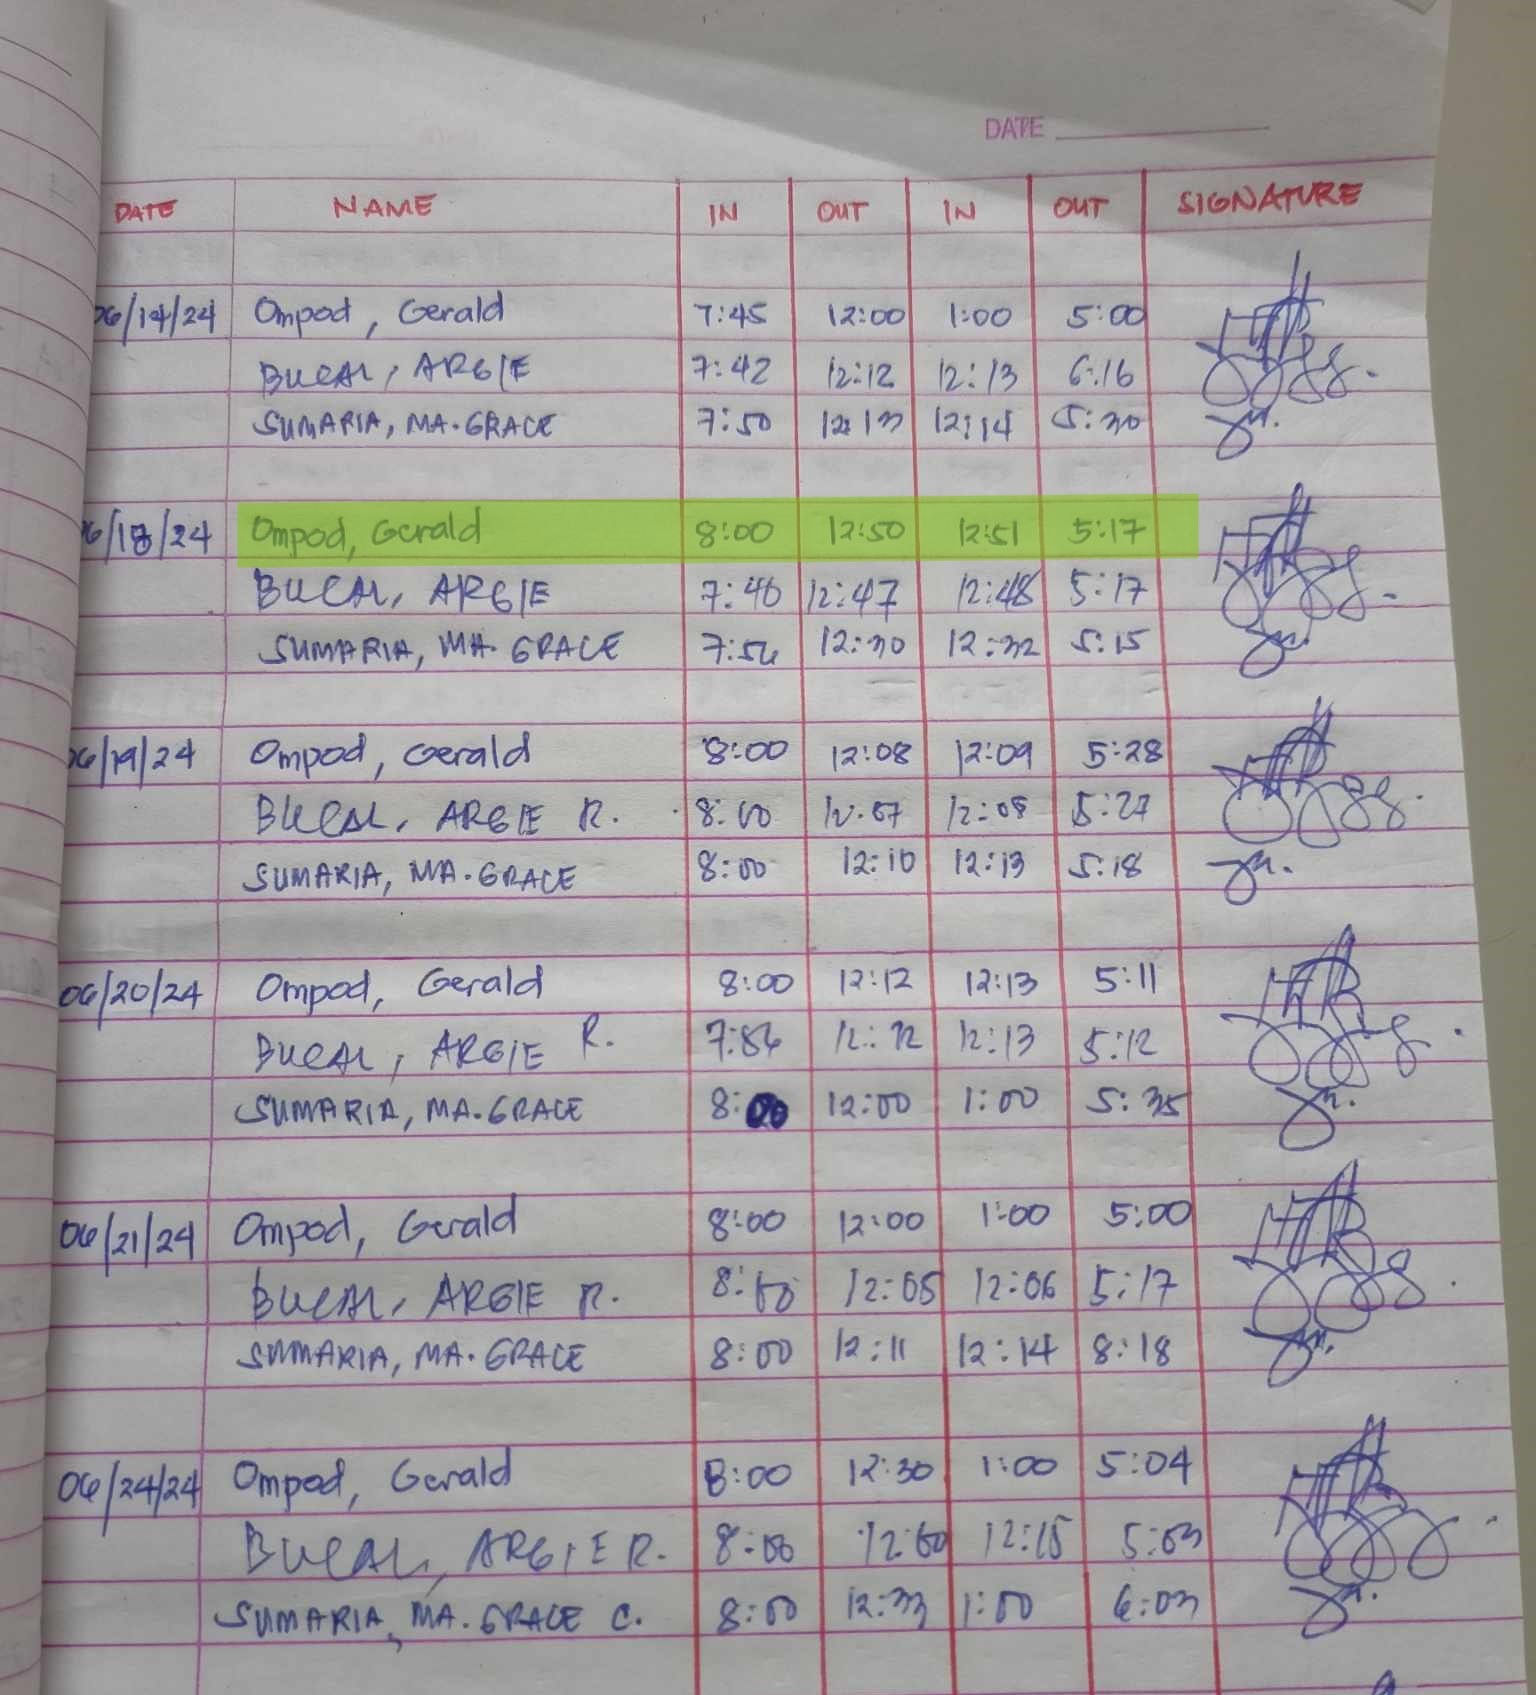 DATE
DATE NAME IN OUT IN OUT SIGNATURE
06/14/24 Ompod, Gerald 7:45 12:00 1:00 5:00
BUCAL, ARGIE 7:42 12:12 12:13 6:16
SUMARIA, MA. GRACE 7:50 12:13 12:14 5:30
06/18/24 Ompod, Gerald 8:00 12:50 12:51 5:17
BUCAL, ARGIE 7:46 12:47 12:48 5:17
SUMARIA, MA. GRACE 12:30 12:32 5:15
06/19/24 Ompod, Gerald 8:00 12:08 12:09 5:28
BUCAL, ARGIE R. 8:00 12:07 12:08 5:27
SUMARIA, MA. GRACE 8:00 12:10 12:13 5:18
06/20/24 Ompod, Gerald 8:00 12:12 12:13 5:11
BUCAL, ARGIE R. 12:12 12:13 5:12
SUMARIA, MA. GRACE 8:00 12:00 1:00 5:35
06/21/24 Ompod, Gerald 8:00 12:00 1:00 5:00
BUCAL, ARGIE R. 8:00 12:05 12:06 5:17
SUMARIA, MA. GRACE 8:00 12:11 12:14 8:18
06/24/24 Ompod, Gerald 8:00 12:30 1:00 5:04
BUCAL, ARGIE R. 8:00 12:15 5:03
SUMARIA, MA. GRACE C. 8:00 12:33 1:00 6:03